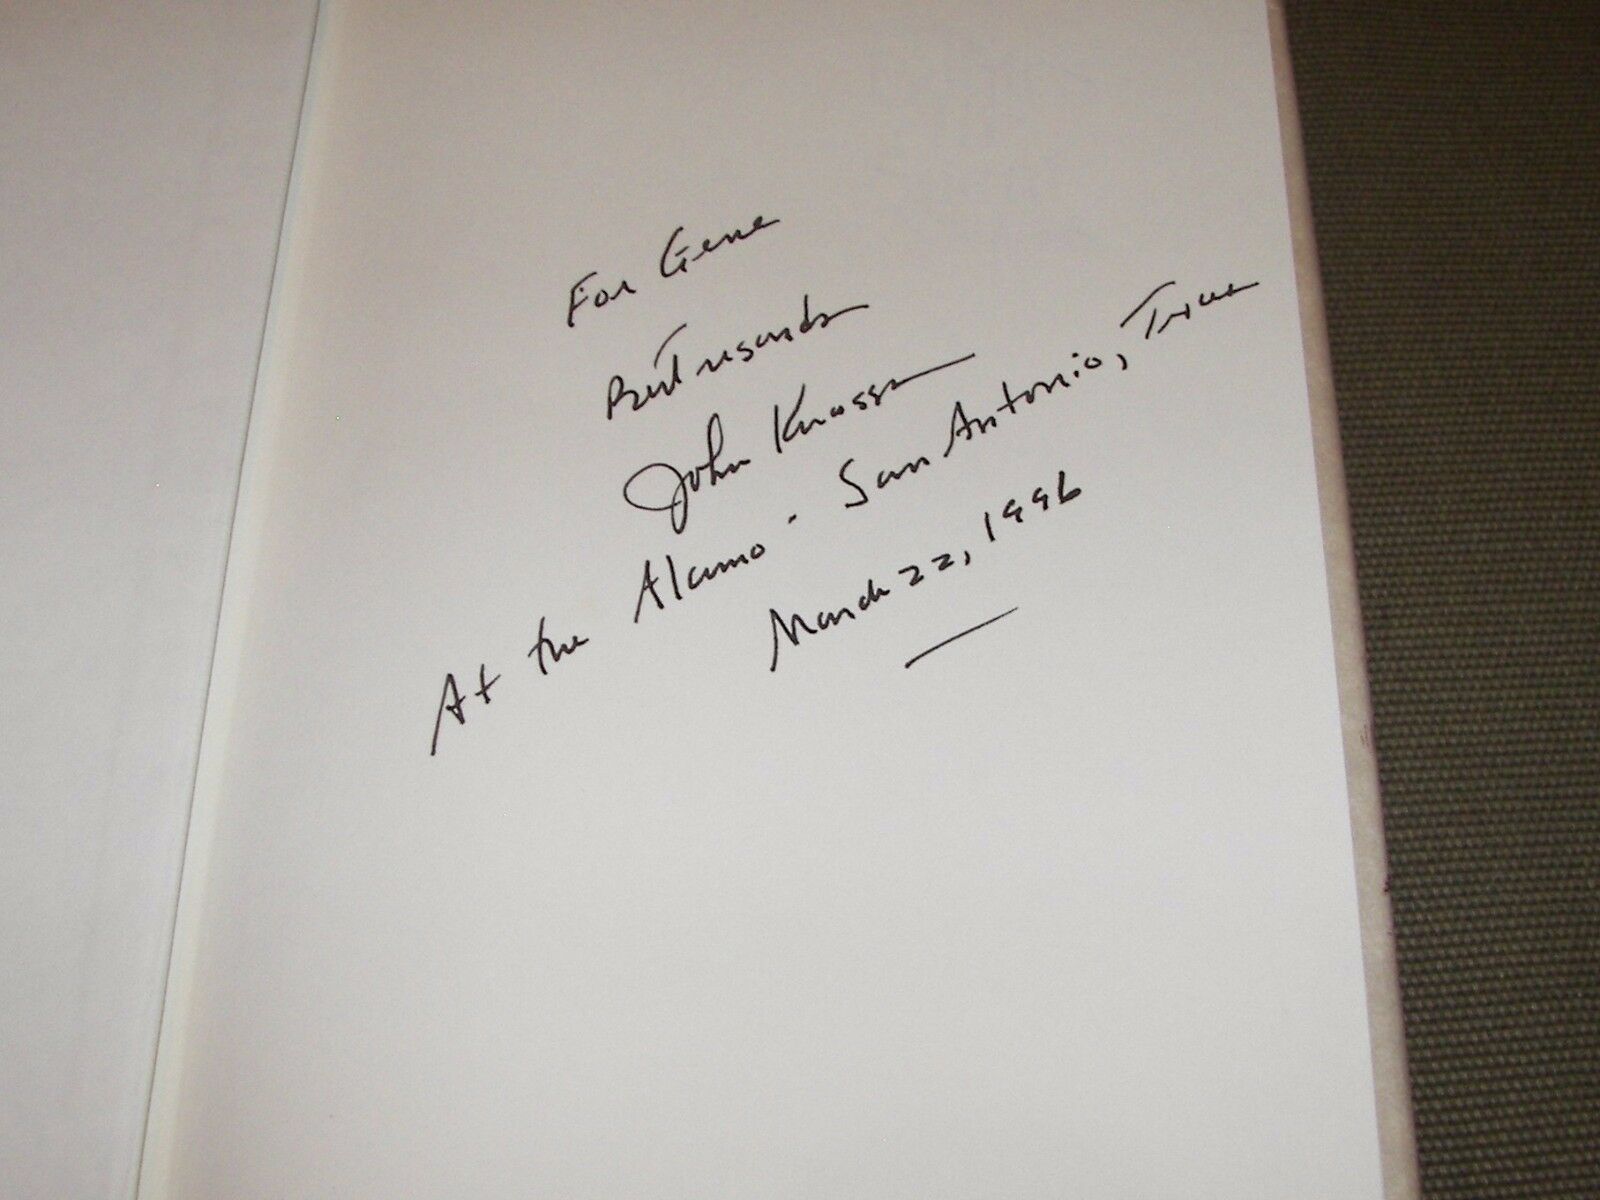 For Gene
Best regards
John Knaggs
At the Alamo - San Antonio, Texas
March 22, 1996